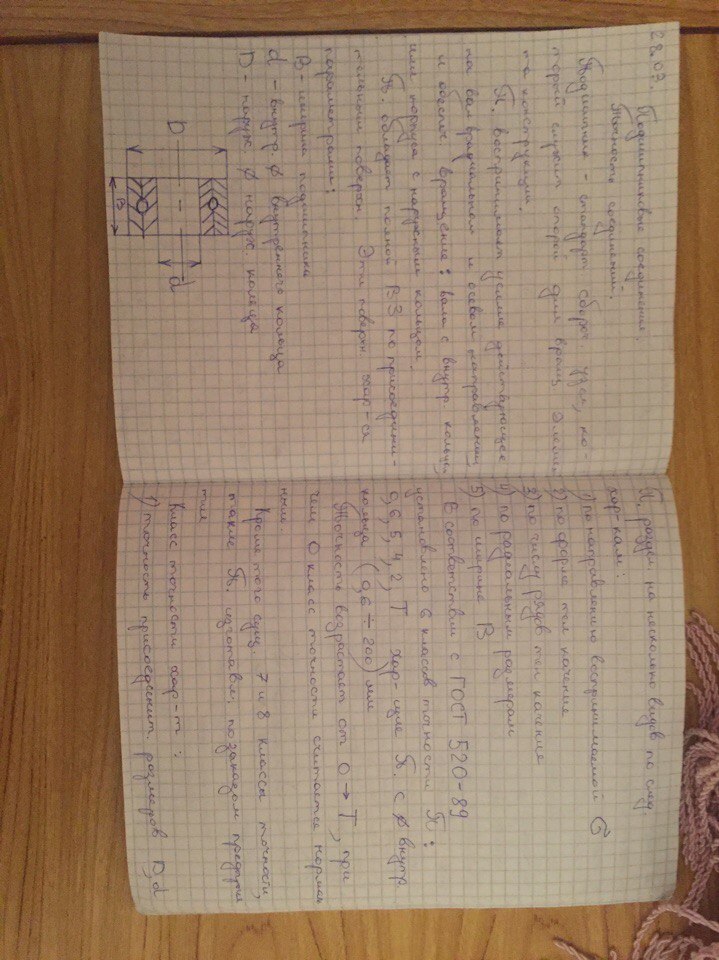 28.03.
Подшипниковые соединения.
Точность соединений.
Подшипник – стандарт. сбороч. узел, ко-
торый служит опорой для вращ. элемен
та конструкции.
П. воспринимает усилия действующее
на вал в радиальном и осевом направлении
и обеспеч вращение: вала с внутр кольц
или корпуса с наружным кольцом.
П. обладает полной ВЗ по присоедини-
тельным поверхн. Эти поверхн. хар-ся
параметрами:
B – ширина подшипника
d – внутр. ø внутреннего кольца
D – наруж. ø наруж. кольца
D
B
d
П. раздел. на несколько видов по след.
хар-кам:
1) по направлению воспринимаемой
2) по форме тел качения
3) по числу рядов тел качения
4) по радеальным размерам
5) по ширине B
В соответствии с ГОСТ 520-89
установлено 6 классов точности П:
0, 6, 5, 4, 2, T хар-щие П. с ø внутр
кольца (0,6 ÷ 200) мм
Точность возрастает от 0 → T, при
чем 0 класс точности считается нормаль
ным.
Кроме того сущ. 7 и 8 классы точности,
такие П. изготавл. по заказам предприя
тия
Класс точности хар-т:
1) точность присоединит. размеров D, d